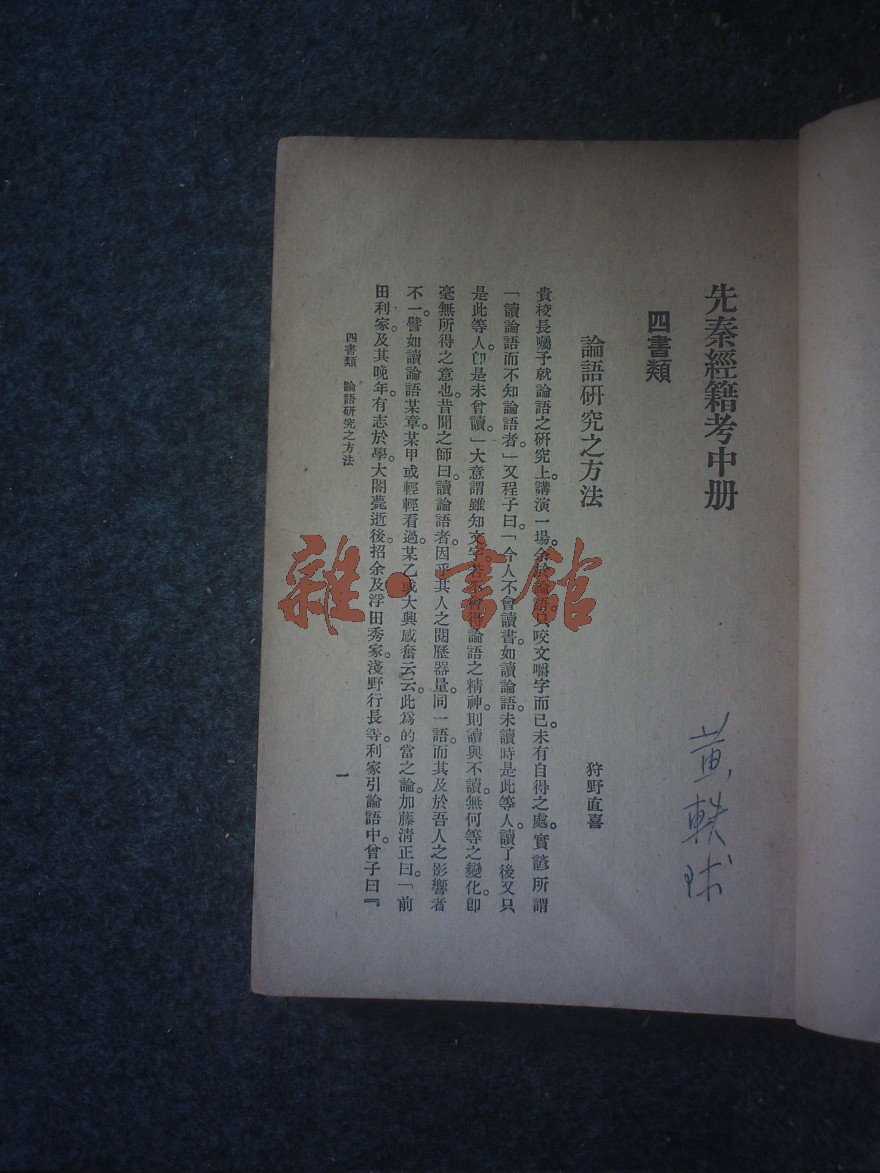 先秦經籍考中册
四書類
論語硏究之方法
狩野直喜
貴校長囑予就論語之硏究上。講演一場。余於論語。只咬文嚼字而已。未有自得之處。實諺所謂
「讀論語而不知論語者。」又程子曰。「今人不會讀書。如讀論語。未讀時是此等人。讀了後又只
是此等人。卽是未曾讀。」大意謂雖知文字。若不會得論語之精神。則讀與不讀。無何等之變化。卽
毫無所得之意也。昔聞之師曰。讀論語者。因乎其人之閱歷器量。同一語而其及於吾人之影響者
不一。譬如讀論語某章。某甲或輕輕看過。某乙或大興感奮云云。此爲的當之論。加藤淸正曰。「前
田利家。及其晚年。有志於學。大閤薨逝後。招余及浮田秀家。淺野行長等。利家引論語中。曾子曰。『
四書類 論語硏究之方法
一
黄軼球
雜·書館